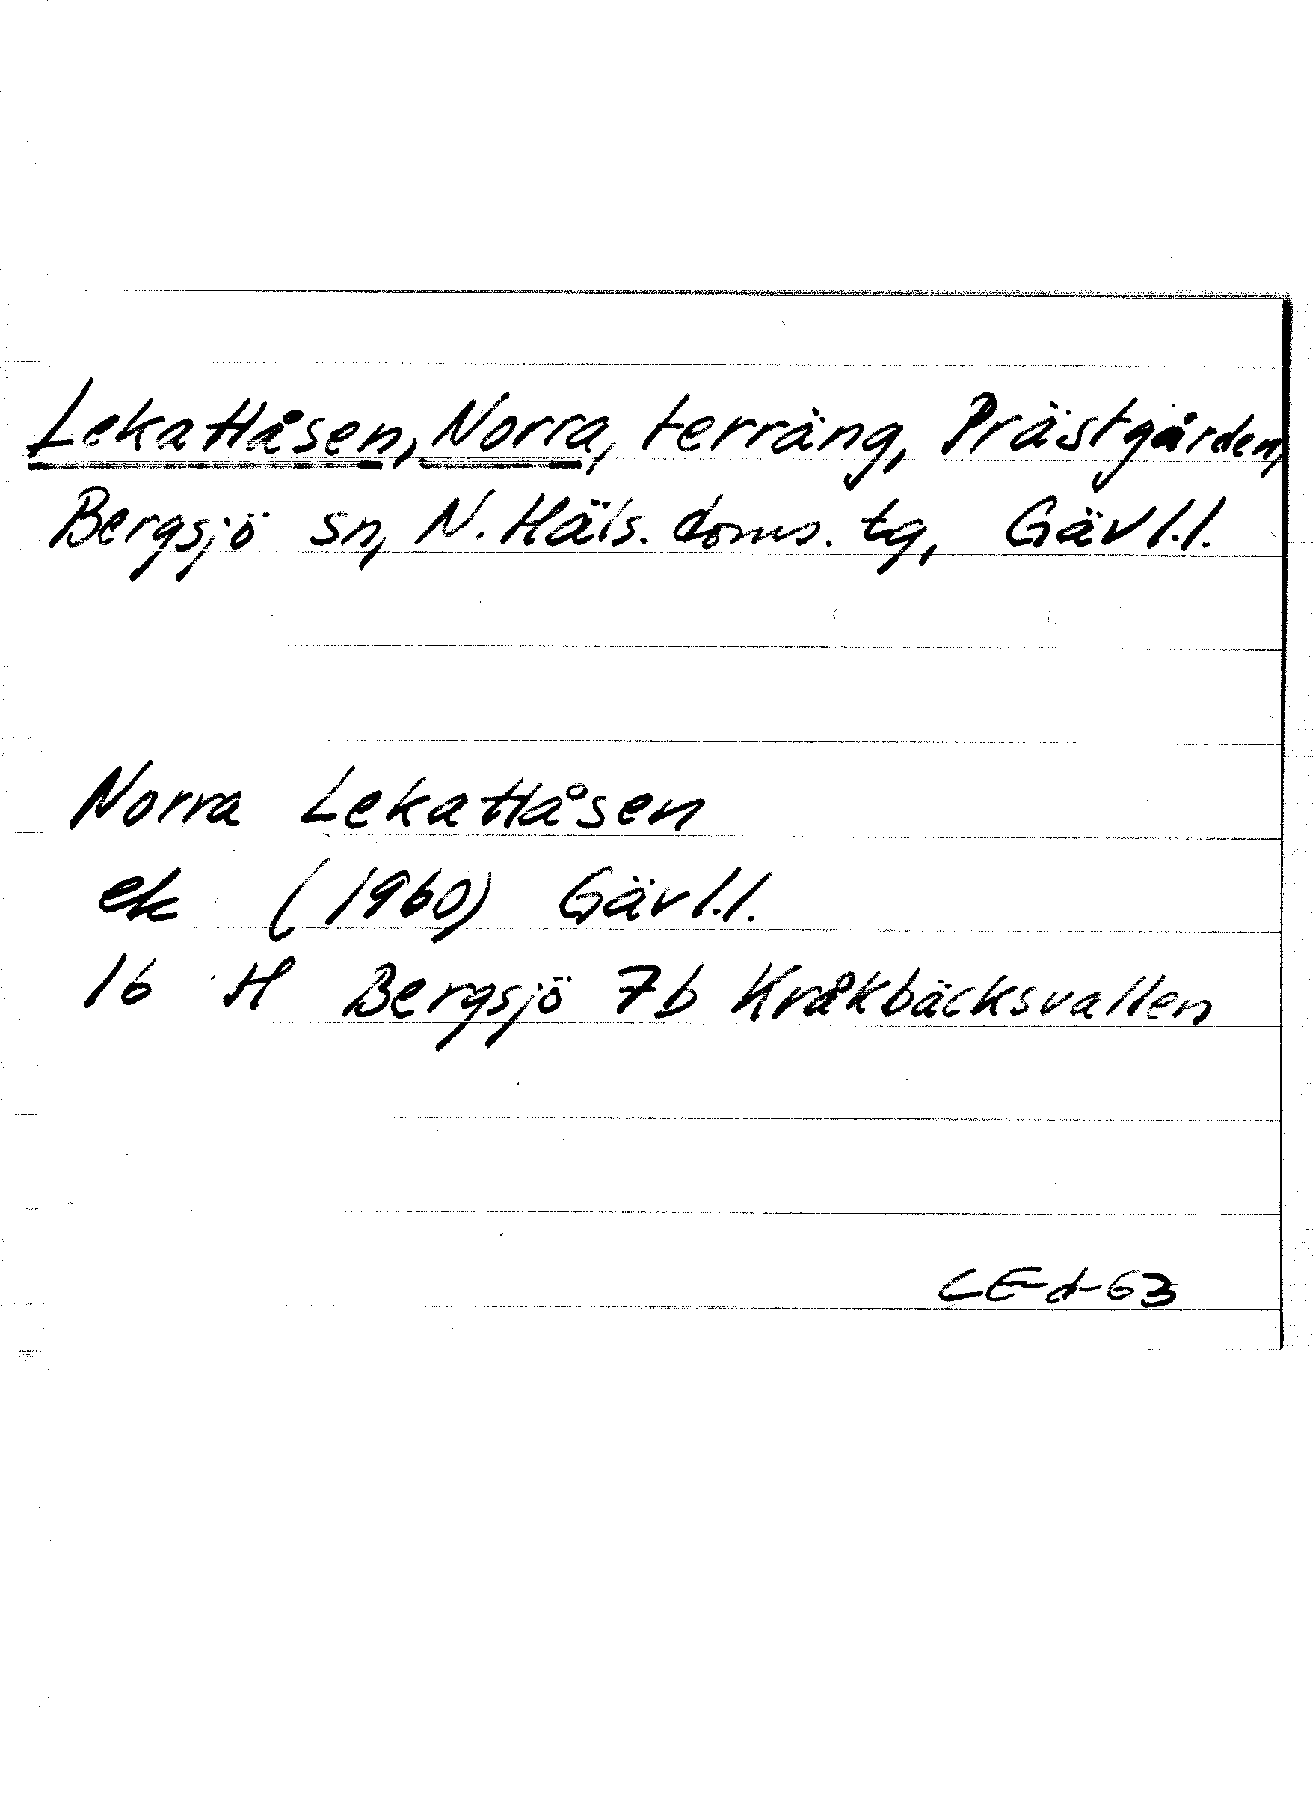 Lekattåsen, Norra, terräng, Prästgården,
Bergsjö sn, N. Häls. doms. tg, Gävl.l.
Norra Lekattåsen
ek (1960) Gävl.l.
16 H Bergsjö 7b Kråkbäcksvallen
CE-d-63